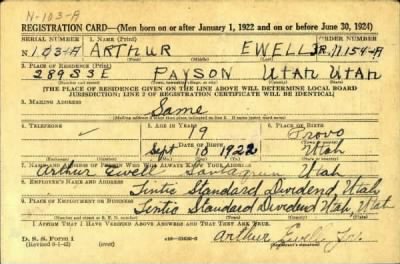 N-103-A
REGISTRATION CARD—(Men born on or after January 1, 1922 and on or before June 30, 1924)
SERIAL NUMBER 1. NAME (Print) ORDER NUMBER
N 103-A ARTHUR EWELL JR. 11154-A
(First) (Middle) (Last)
2. PLACE OF RESIDENCE (Print)
289 S 3 E PAYSON UTAH UTAH
(Number and street) (Town, township, village, or city) (County) (State)
[THE PLACE OF RESIDENCE GIVEN ON THE LINE ABOVE WILL DETERMINE LOCAL BOARD
JURISDICTION; LINE 2 OF REGISTRATION CERTIFICATE WILL BE IDENTICAL]
3. MAILING ADDRESS
Same
[Mailing address if other than place indicated on line 2. If same insert word same]
4. TELEPHONE 5. AGE IN YEARS 6. PLACE OF BIRTH
19 Provo
DATE OF BIRTH
Sept 16 1922 Utah
7. NAME AND ADDRESS OF PERSON WHO WILL ALWAYS KNOW YOUR ADDRESS
Arthur Ewell Santaquin Utah
8. EMPLOYER'S NAME AND ADDRESS
Tintic Standard Dividend, Utah
9. PLACE OF EMPLOYMENT OR BUSINESS
Tintic Standard Dividend Utah, Utah
(Number and street or R. F. D. number) (Town) (County) (State)
I AFFIRM THAT I HAVE VERIFIED ABOVE ANSWERS AND THAT THEY ARE TRUE.
D. S. S. Form 1 Arthur Ewell Jr.